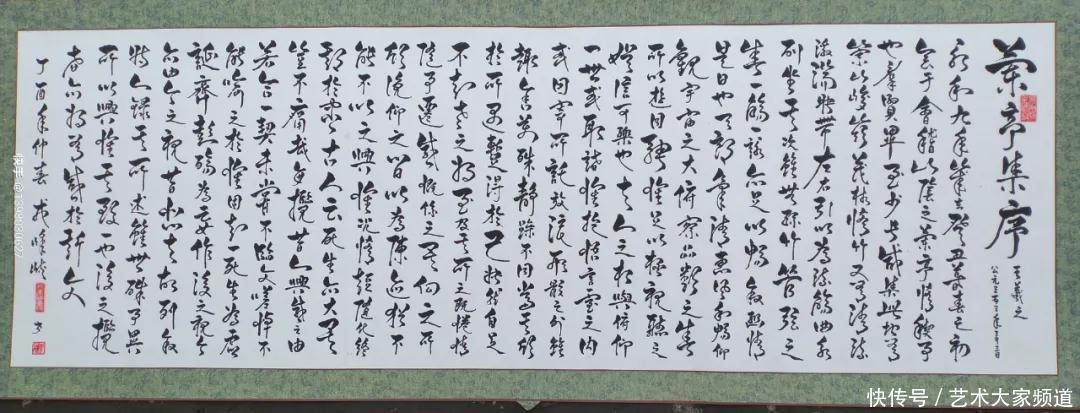 蘭亭集序
王羲之
永和九年歲在癸丑暮春之初
會于會稽山陰之蘭亭脩禊事
也羣賢畢至少長咸集此地有
崇山峻嶺茂林脩竹又有清流
激湍映帶左右引以為流觴曲水
列坐其次雖無絲竹管弦之
盛一觴一詠亦足以暢敘幽情
是日也天朗氣清惠風和暢仰
觀宇宙之大俯察品類之盛
所以遊目騁懷足以極視聽之
娛信可樂也夫人之相與俯仰
一世或取諸懷抱悟言一室之內
或因寄所託放浪形骸之外雖
趣舍萬殊靜躁不同當其欣
於所遇暫得於己怏然自足
不知老之將至及其所之既惓情
隨事遷感慨係之矣向之所
欣俛仰之間以為陳迹猶不
能不以之興懷況脩短隨化終
期於盡古人云死生亦大矣
豈不痛哉每攬昔人興感之由
若合一契未嘗不臨文嗟悼不
能喻之於懷固知一死生為虛
誕齊彭殤為妄作後之視今
亦由今之視昔悲夫故列敘
時人錄其所述雖世殊事異
所以興懷其致一也後之攬
者亦將有感於斯文
丁酉年仲春 书
快传号／艺术大家频道